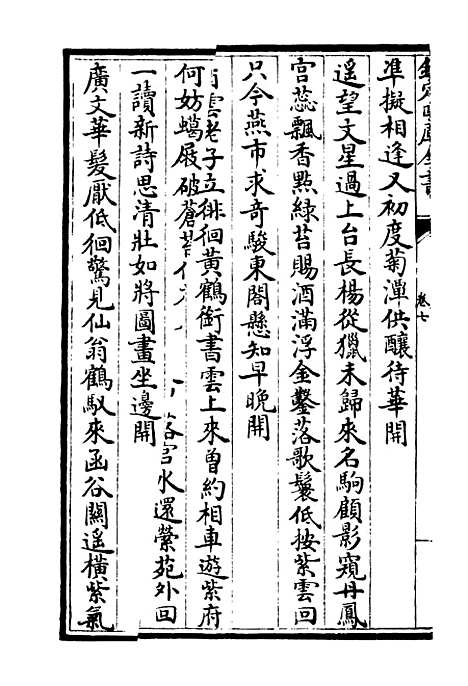 欽定四庫全書
卷七
準擬相逢又初度菊潭供釀待華開
遥望文星過上台長楊從獵未歸來名駒顧影窺丹鳳
宫蕊飄香㸃緑苔賜酒滿浮金鑿落歌鬟低按紫雲回
只今燕市求竒駿東閣懸知早晚開
雲老子立徘徊黄鶴銜書雲上來曾約相車遊紫府
何妨蠟屐破蒼苔 落宫水還縈苑外回
一讀新詩思清壯如將圖畫坐邊開
廣文華髪厭低徊驚見仙翁鶴馭來函谷闗遥横紫氣